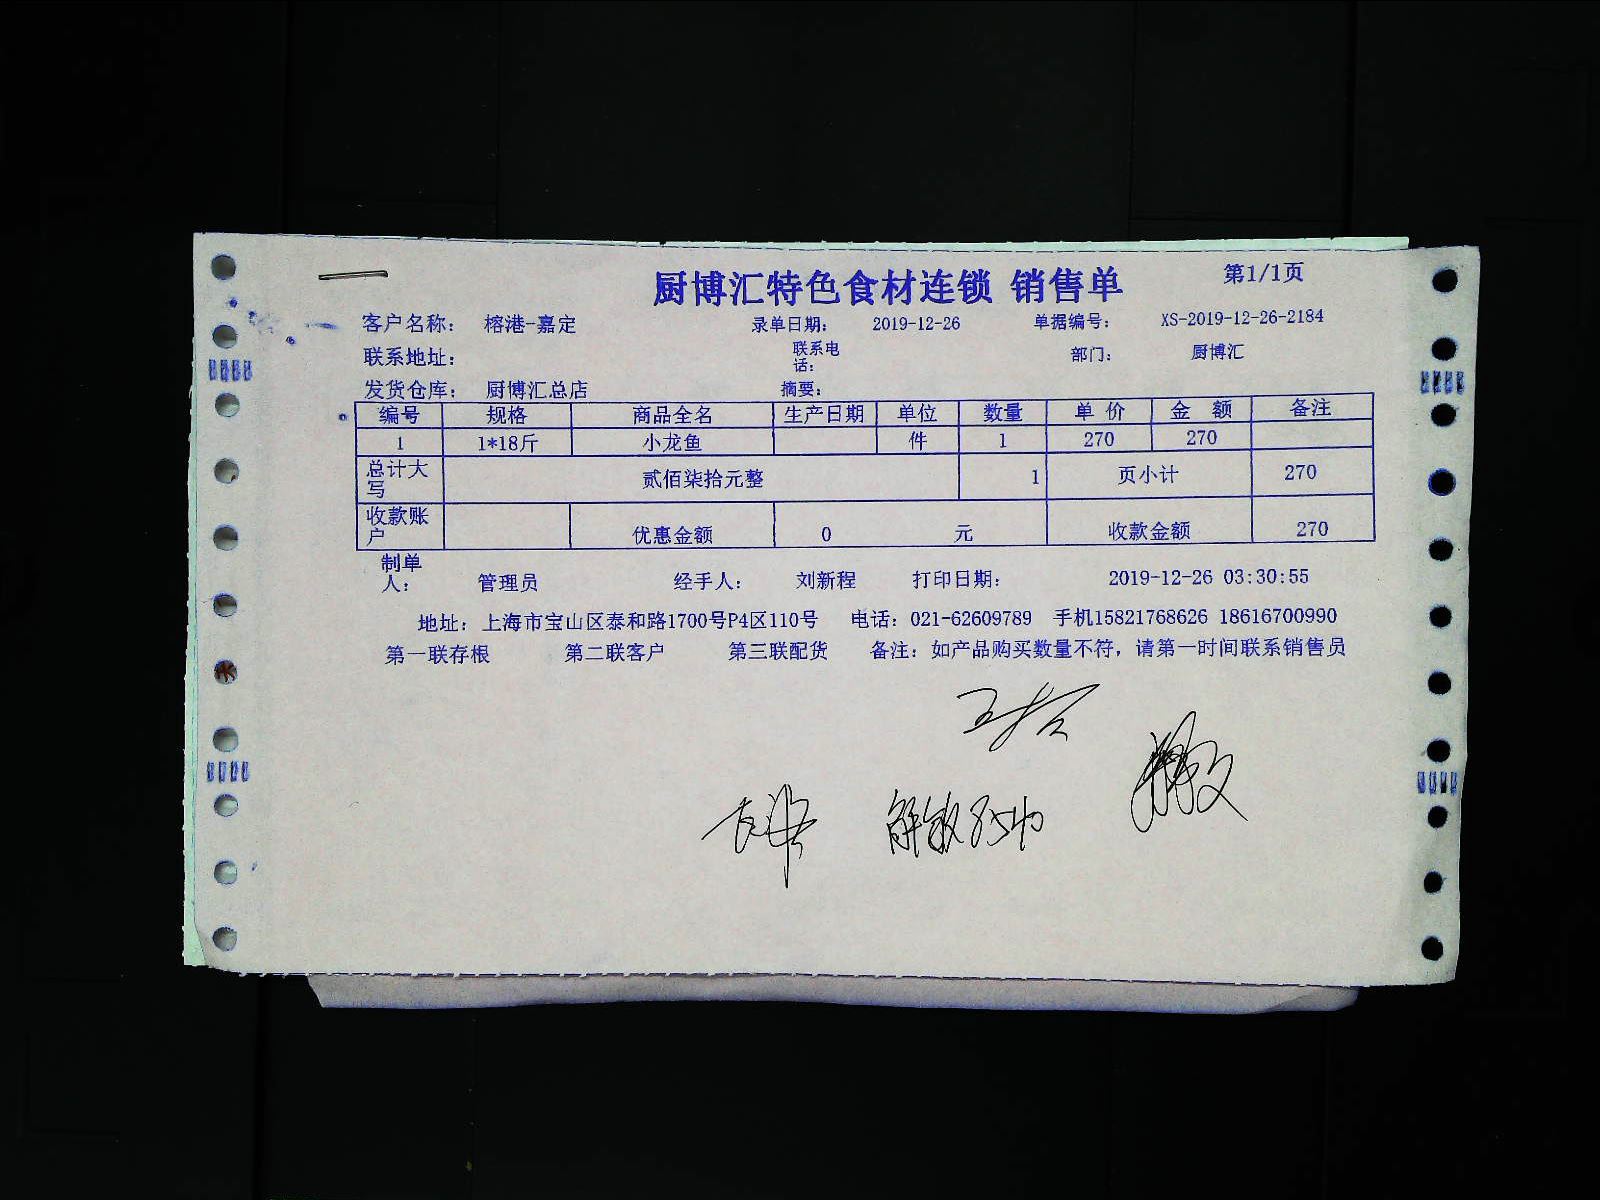 厨博汇特色食材连锁 销售单 第1/1页
客户名称： 榕港-嘉定 录单日期： 2019-12-26 单据编号： XS-2019-12-26-2184
联系地址： 联系电话： 部门： 厨博汇
发货仓库： 厨博汇总店 摘要：
编号 规格 商品全名 生产日期 单位 数量 单 价 金 额 备注
1 1*18斤 小龙鱼 件 1 270 270
总计大写 贰佰柒拾元整 1 页小计 270
收款账户 优惠金额 0 元 收款金额 270
制单人： 管理员 经手人： 刘新程 打印日期： 2019-12-26 03:30:55
地址：上海市宝山区泰和路1700号P4区110号 电话：021-62609789 手机15821768626 18616700990
第一联存根 第二联客户 第三联配货 备注：如产品购买数量不符，请第一时间联系销售员